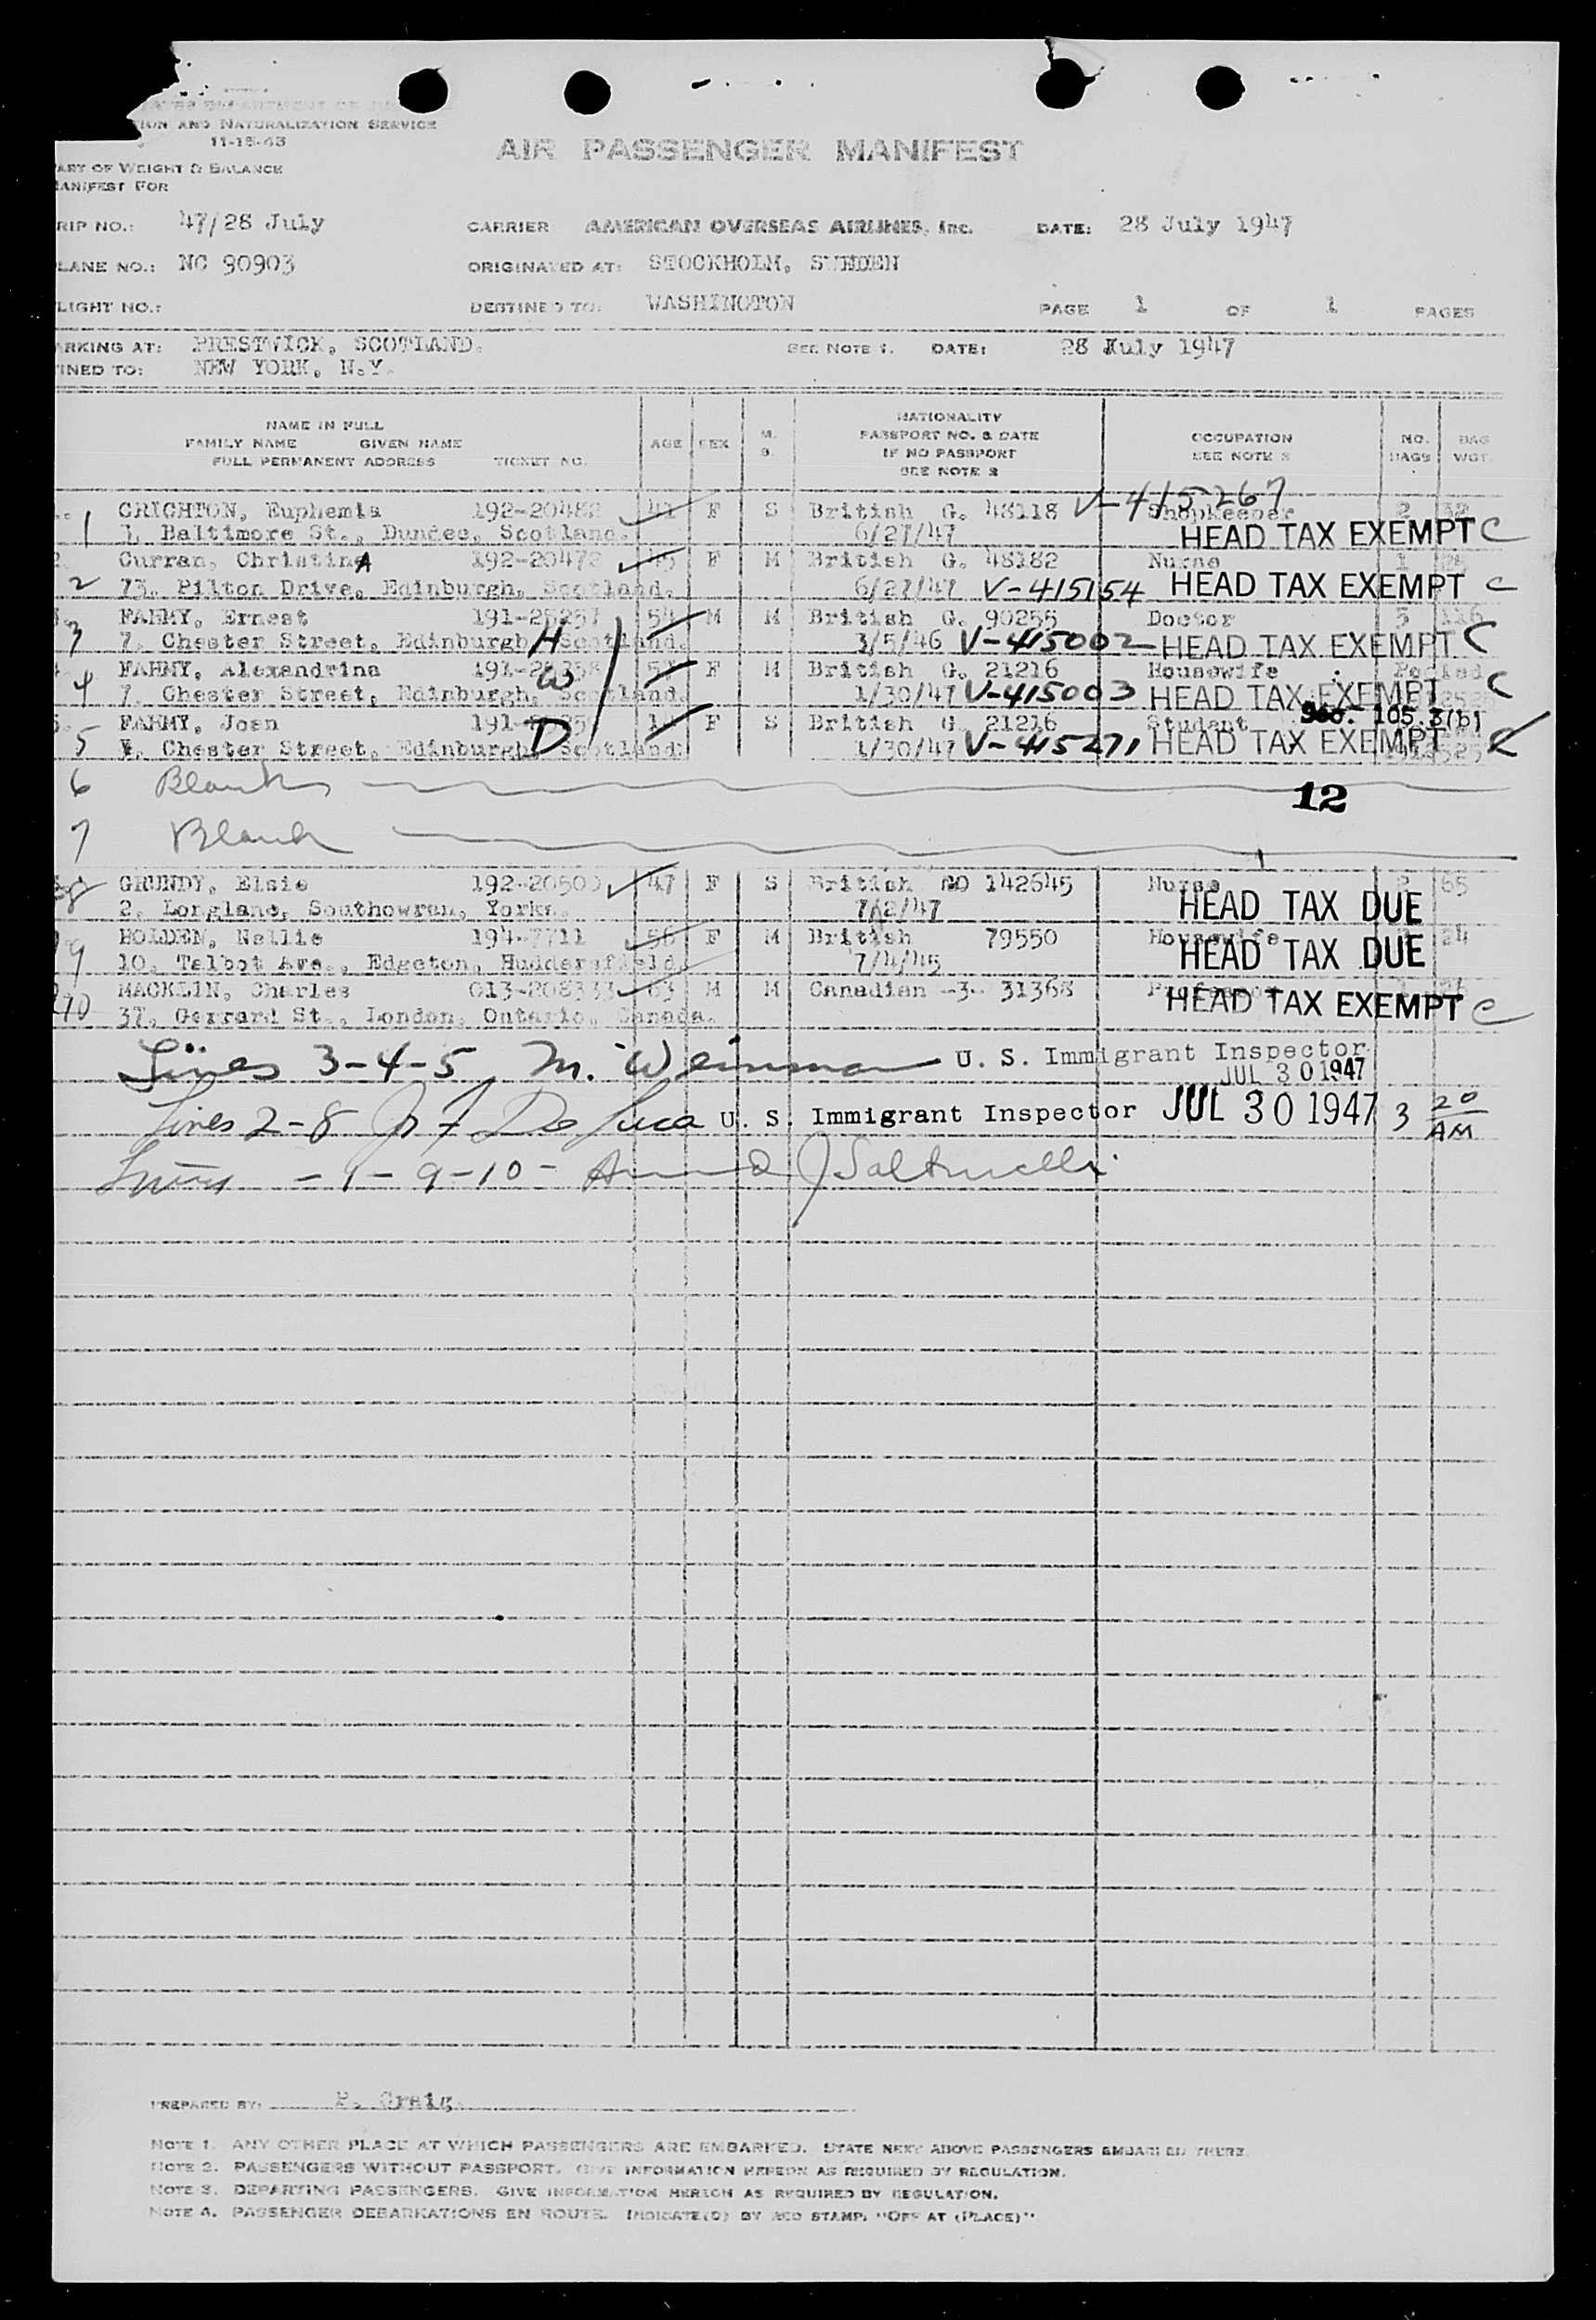 ION AND NATURALIZATION SERVICE
11-18-43
AIR PASSENGER MANIFEST
ART OF WEIGHT & BALANCE
ANIFEST FOR
RIP NO.: 47/28 July CARRIER AMERICAN OVERSEAS AIRLINES, Inc. DATE: 28 July 1947
LANE NO.: NC 90903 ORIGINATED AT: STOCKHOLM, SWEDEN
LIGHT NO.: DESTINED TO: WASHINGTON PAGE 1 OF 1 PAGES
ARKING AT: PRESTWICK, SCOTLAND. SEE NOTE 1. DATE: 28 July 1947
INED TO: NEW YORK, N.Y.
NAME IN FULL
FAMILY NAME GIVEN NAME
FULL PERMANENT ADDRESS TICKET NO. AGE SEX M. S. NATIONALITY
PASSPORT NO. & DATE
IF NO PASSPORT
SEE NOTE 2 OCCUPATION
SEE NOTE 3 NO. BAGS BAG WGT.
1 CRICHTON, Euphemia 192-20482 41 F S British G. 48118 V-415267 Shopkeeper 2 32
1, Baltimore St., Dundee, Scotland. 6/27/47 HEAD TAX EXEMPT C
2 Curran, ChristinA 192-20472 45 F M British G. 48182 Nurse 1
73, Pilton Drive, Edinburgh, Scotland. 6/27/47 V-415154 HEAD TAX EXEMPT C
3 FAHMY, Ernest 191-25257 54 M M British G. 90255 Doctor 5 116
7, Chester Street, Edinburgh, Scotland. H 3/5/46 V-415002 HEAD TAX EXEMPT C
4 FAHMY, Alexandrina F M British G. 21216 Housewife Pooled
7, Chester Street, Edinburgh, Scotland. W 1/30/47 V-415003 HEAD TAX EXEMPT C
5 FAHMY, Joan F S British G. 21216 Student Sec. 105.3(b)
7, Chester Street, Edinburgh, Scotland. D 1/30/47 V-415271 HEAD TAX EXEMPT C
6 Blank
12
7 Blank
8 GRUNDY, Elsie 192-20500 47 F S British 142645 Nurse 65
2, Longlane, Southowram, Yorks. 7/2/47 HEAD TAX DUE
9 HOLDEN, Nellie 194-7711 56 F M British 79550 Housewife 24
10, Talbot Ave., Edgeton, Huddersfield. 7/4/45 HEAD TAX DUE
10 MACKLIN, Charles 013-208333 63 M M Canadian -3- 31368 Professor
37, Gerrard St., London, Ontario, Canada. HEAD TAX EXEMPT C
Lines 3-4-5 M. Weinman U. S. Immigrant Inspector
JUL 30 1947
Lines 2-8 De Luca U. S. Immigrant Inspector JUL 30 1947 3 20 AM
Lines - 1 - 9 - 10 -
PREPARED BY: P. Craig
NOTE 1. ANY OTHER PLACE AT WHICH PASSENGERS ARE EMBARKED. STATE NEXT ABOVE PASSENGERS EMBARKED THERE.
NOTE 2. PASSENGERS WITHOUT PASSPORT. GIVE INFORMATION HEREON AS REQUIRED BY REGULATION.
NOTE 3. DEPARTING PASSENGERS. GIVE INFORMATION HEREON AS REQUIRED BY REGULATION.
NOTE 4. PASSENGER DEBARKATIONS EN ROUTE. INDICATE(D) BY RED STAMP: "OFF AT (PLACE)"